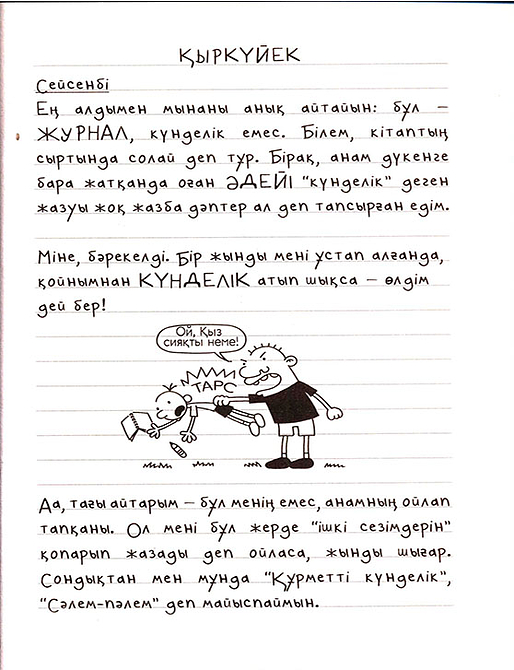 ҚЫРКҮЙЕК
Сейсенбі
Ең алдымен мынаны анық айтайын: бұл –
ЖУРНАЛ, күнделік емес. Білем, кітаптың
сыртында солай деп тұр. Бірақ, анам дүкенге
бара жатқанда оған ӘДЕЙІ “күнделік” деген
жазуы жоқ жазба дәптер ал деп тапсырған едім.
Міне, бәрекелді. Бір жынды мені ұстап алғанда,
қойнымнан КҮНДЕЛІК атып шықса – өлдім
дей бер!
Ой, Қыз
сияқты неме!
ТАРС
Да, тағы айтарым – бұл менің емес, анамның ойлап
тапқаны. Ол мені бұл жерде “ішкі сезімдерін”
қопарып жазады деп ойласа, жынды шығар.
Сондықтан мен мұнда “Құрметті күнделік”,
“Сәлем-пәлем” деп майыспаймын.